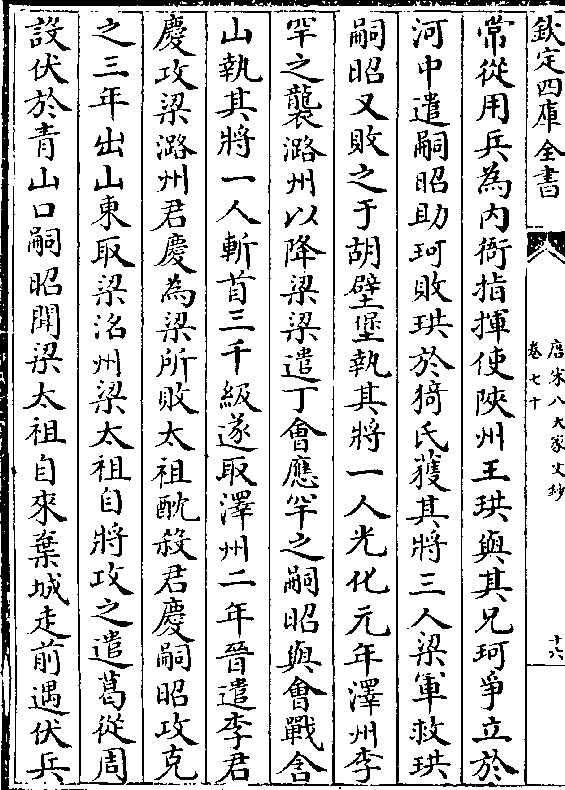 欽定四庫全書
唐宋八大家文鈔
卷七十
十六
常從用兵為内衙指揮使陜州王珙與其兄珂爭立於
河中遣嗣昭助珂敗珙於猗氏獲其將三人梁軍救珙
嗣昭又敗之于胡壁堡執其將一人光化元年澤州李
罕之襲潞州以降梁梁遣丁會應罕之嗣昭與會戰含
山執其將一人斬首三千級遂取澤州二年晉遣李君
慶攻梁潞州君慶為梁所敗太祖酖殺君慶嗣昭攻克
之三年出山東取梁洺州梁太祖自將攻之遣葛從周
設伏於青山口嗣昭聞梁太祖自來棄城走前遇伏兵